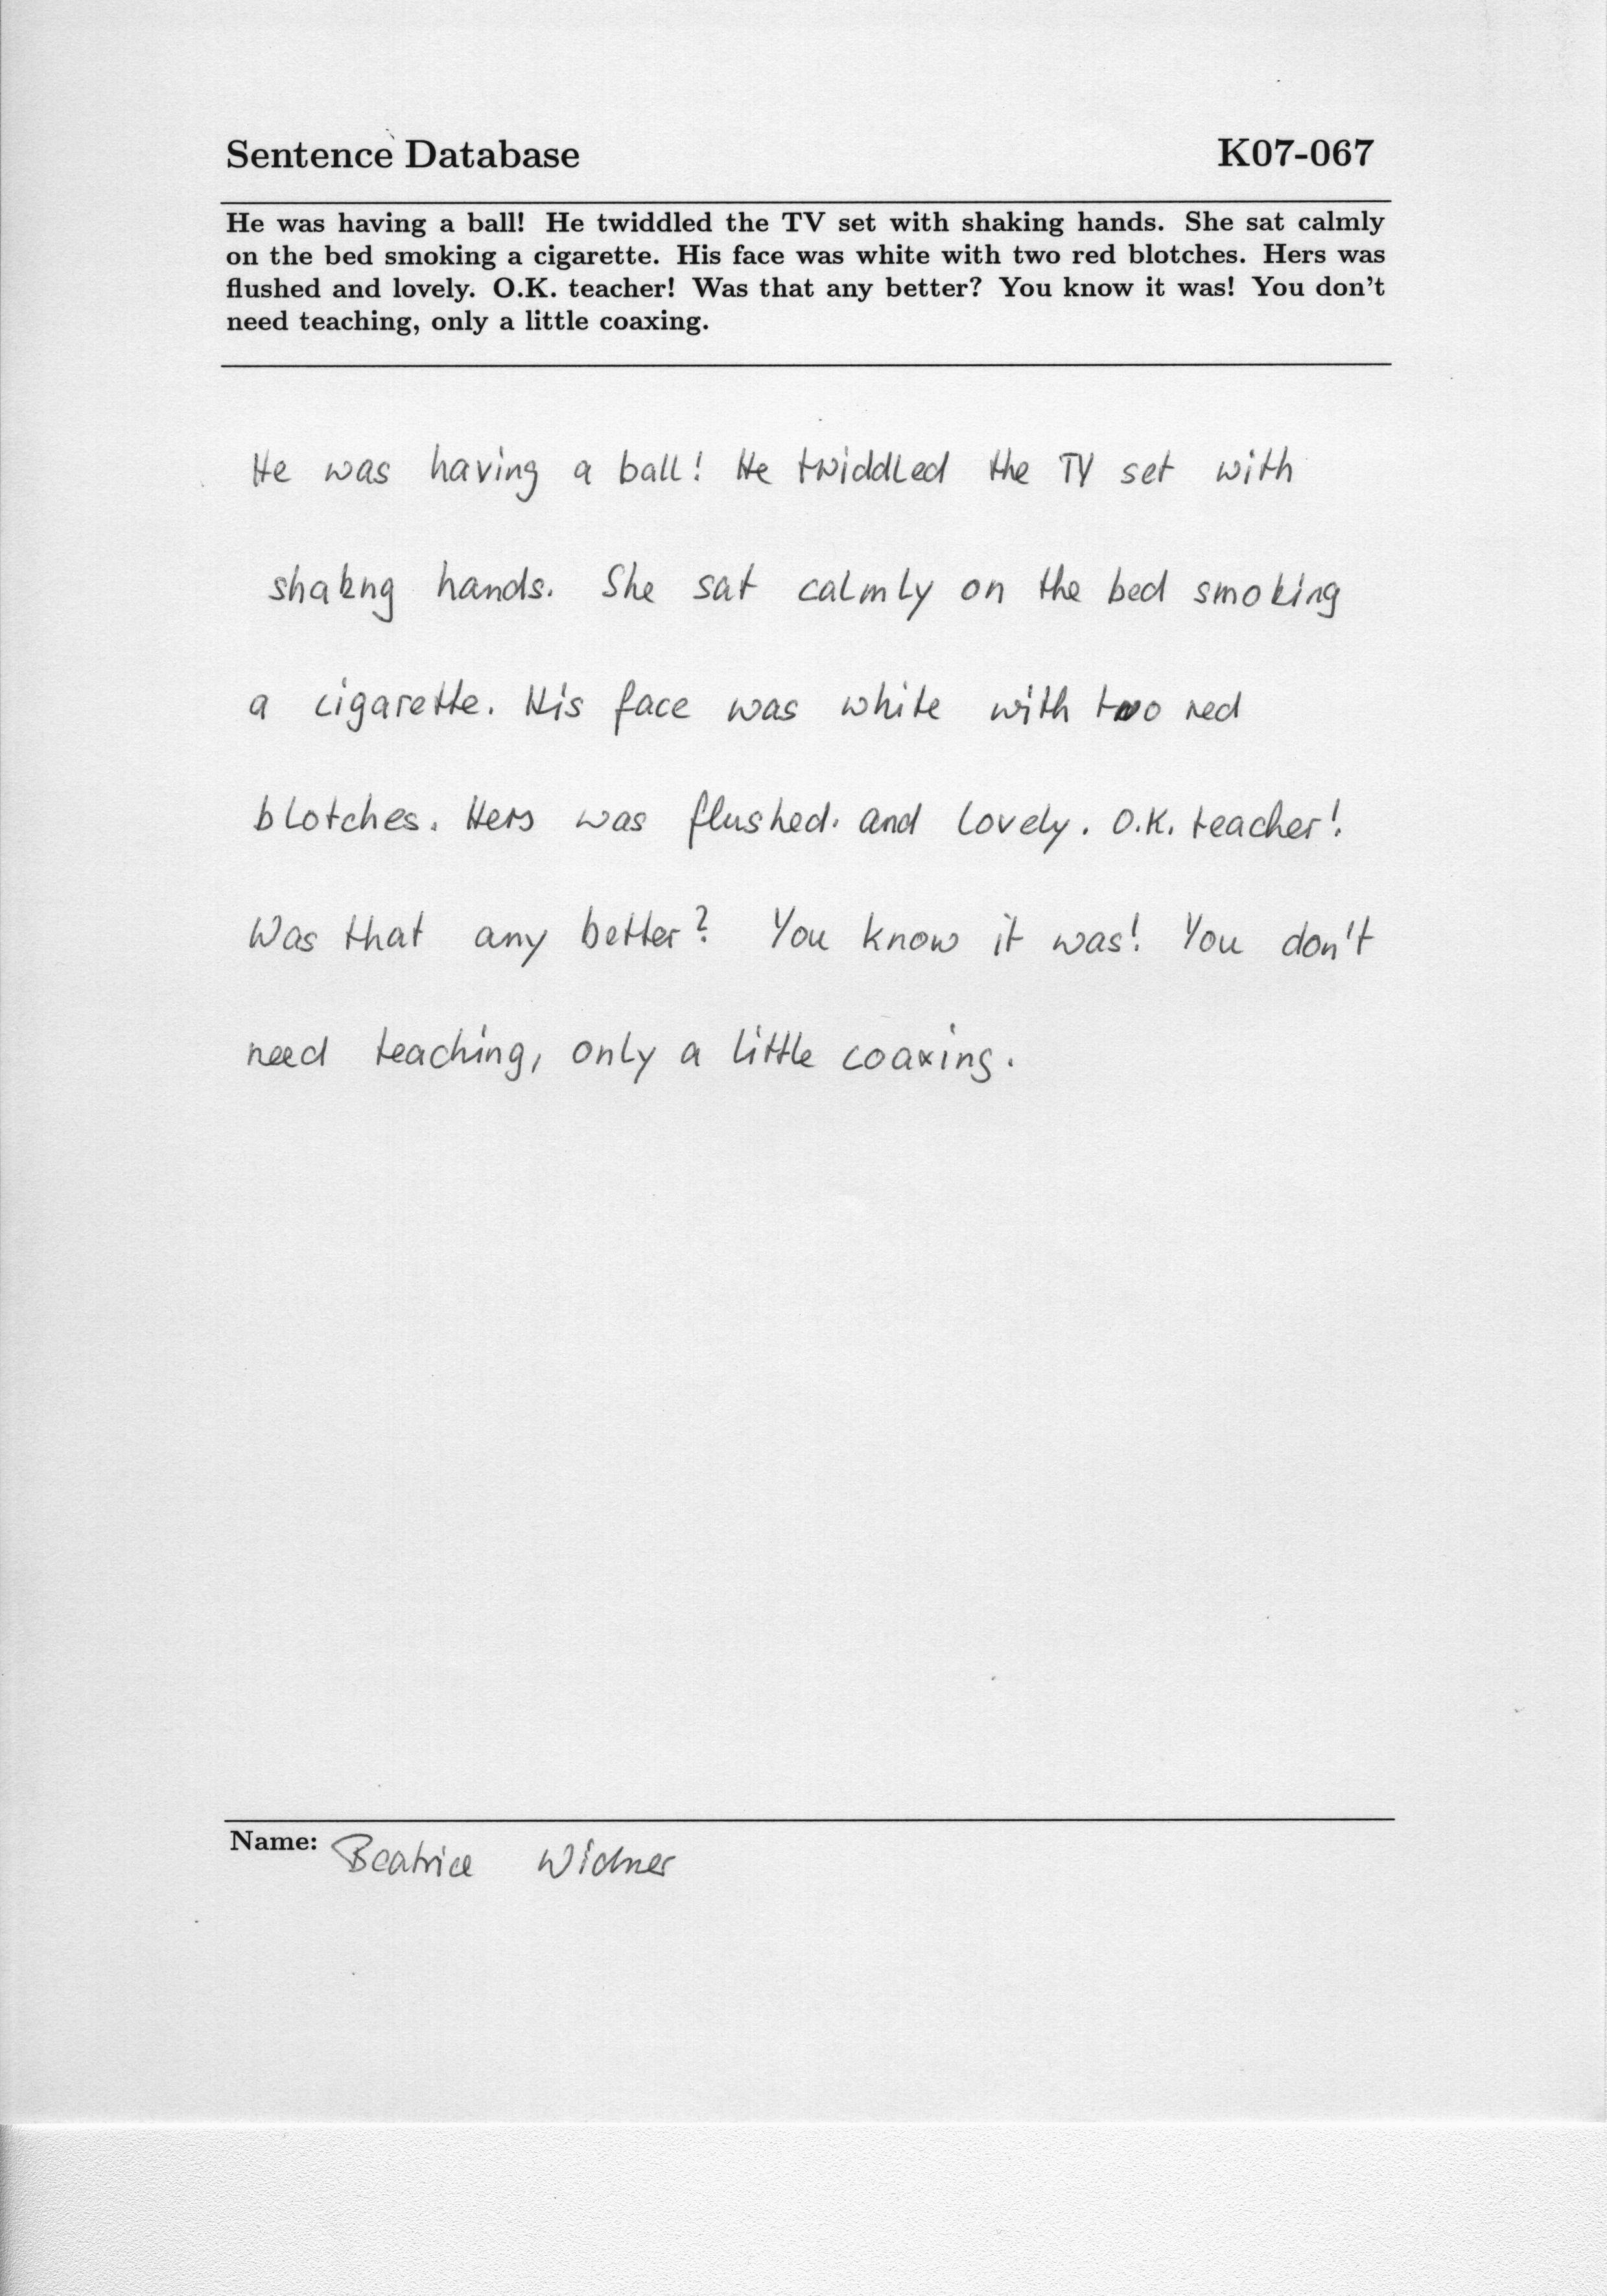 Sentence Database K07-067
He was having a ball! He twiddled the TV set with shaking hands. She sat calmly
on the bed smoking a cigarette. His face was white with two red blotches. Hers was
flushed and lovely. O.K. teacher! Was that any better? You know it was! You don't
need teaching, only a little coaxing.
He was having a ball! He twiddled the TV set with
shakng hands. She sat calmly on the bed smoking
a cigarette. His face was white with two red
blotches. Hers was flushed. and lovely. O.K. teacher!
Was that any better? You know it was! You don't
need teaching, only a little coaxing.
Name: Beatrice Widmer